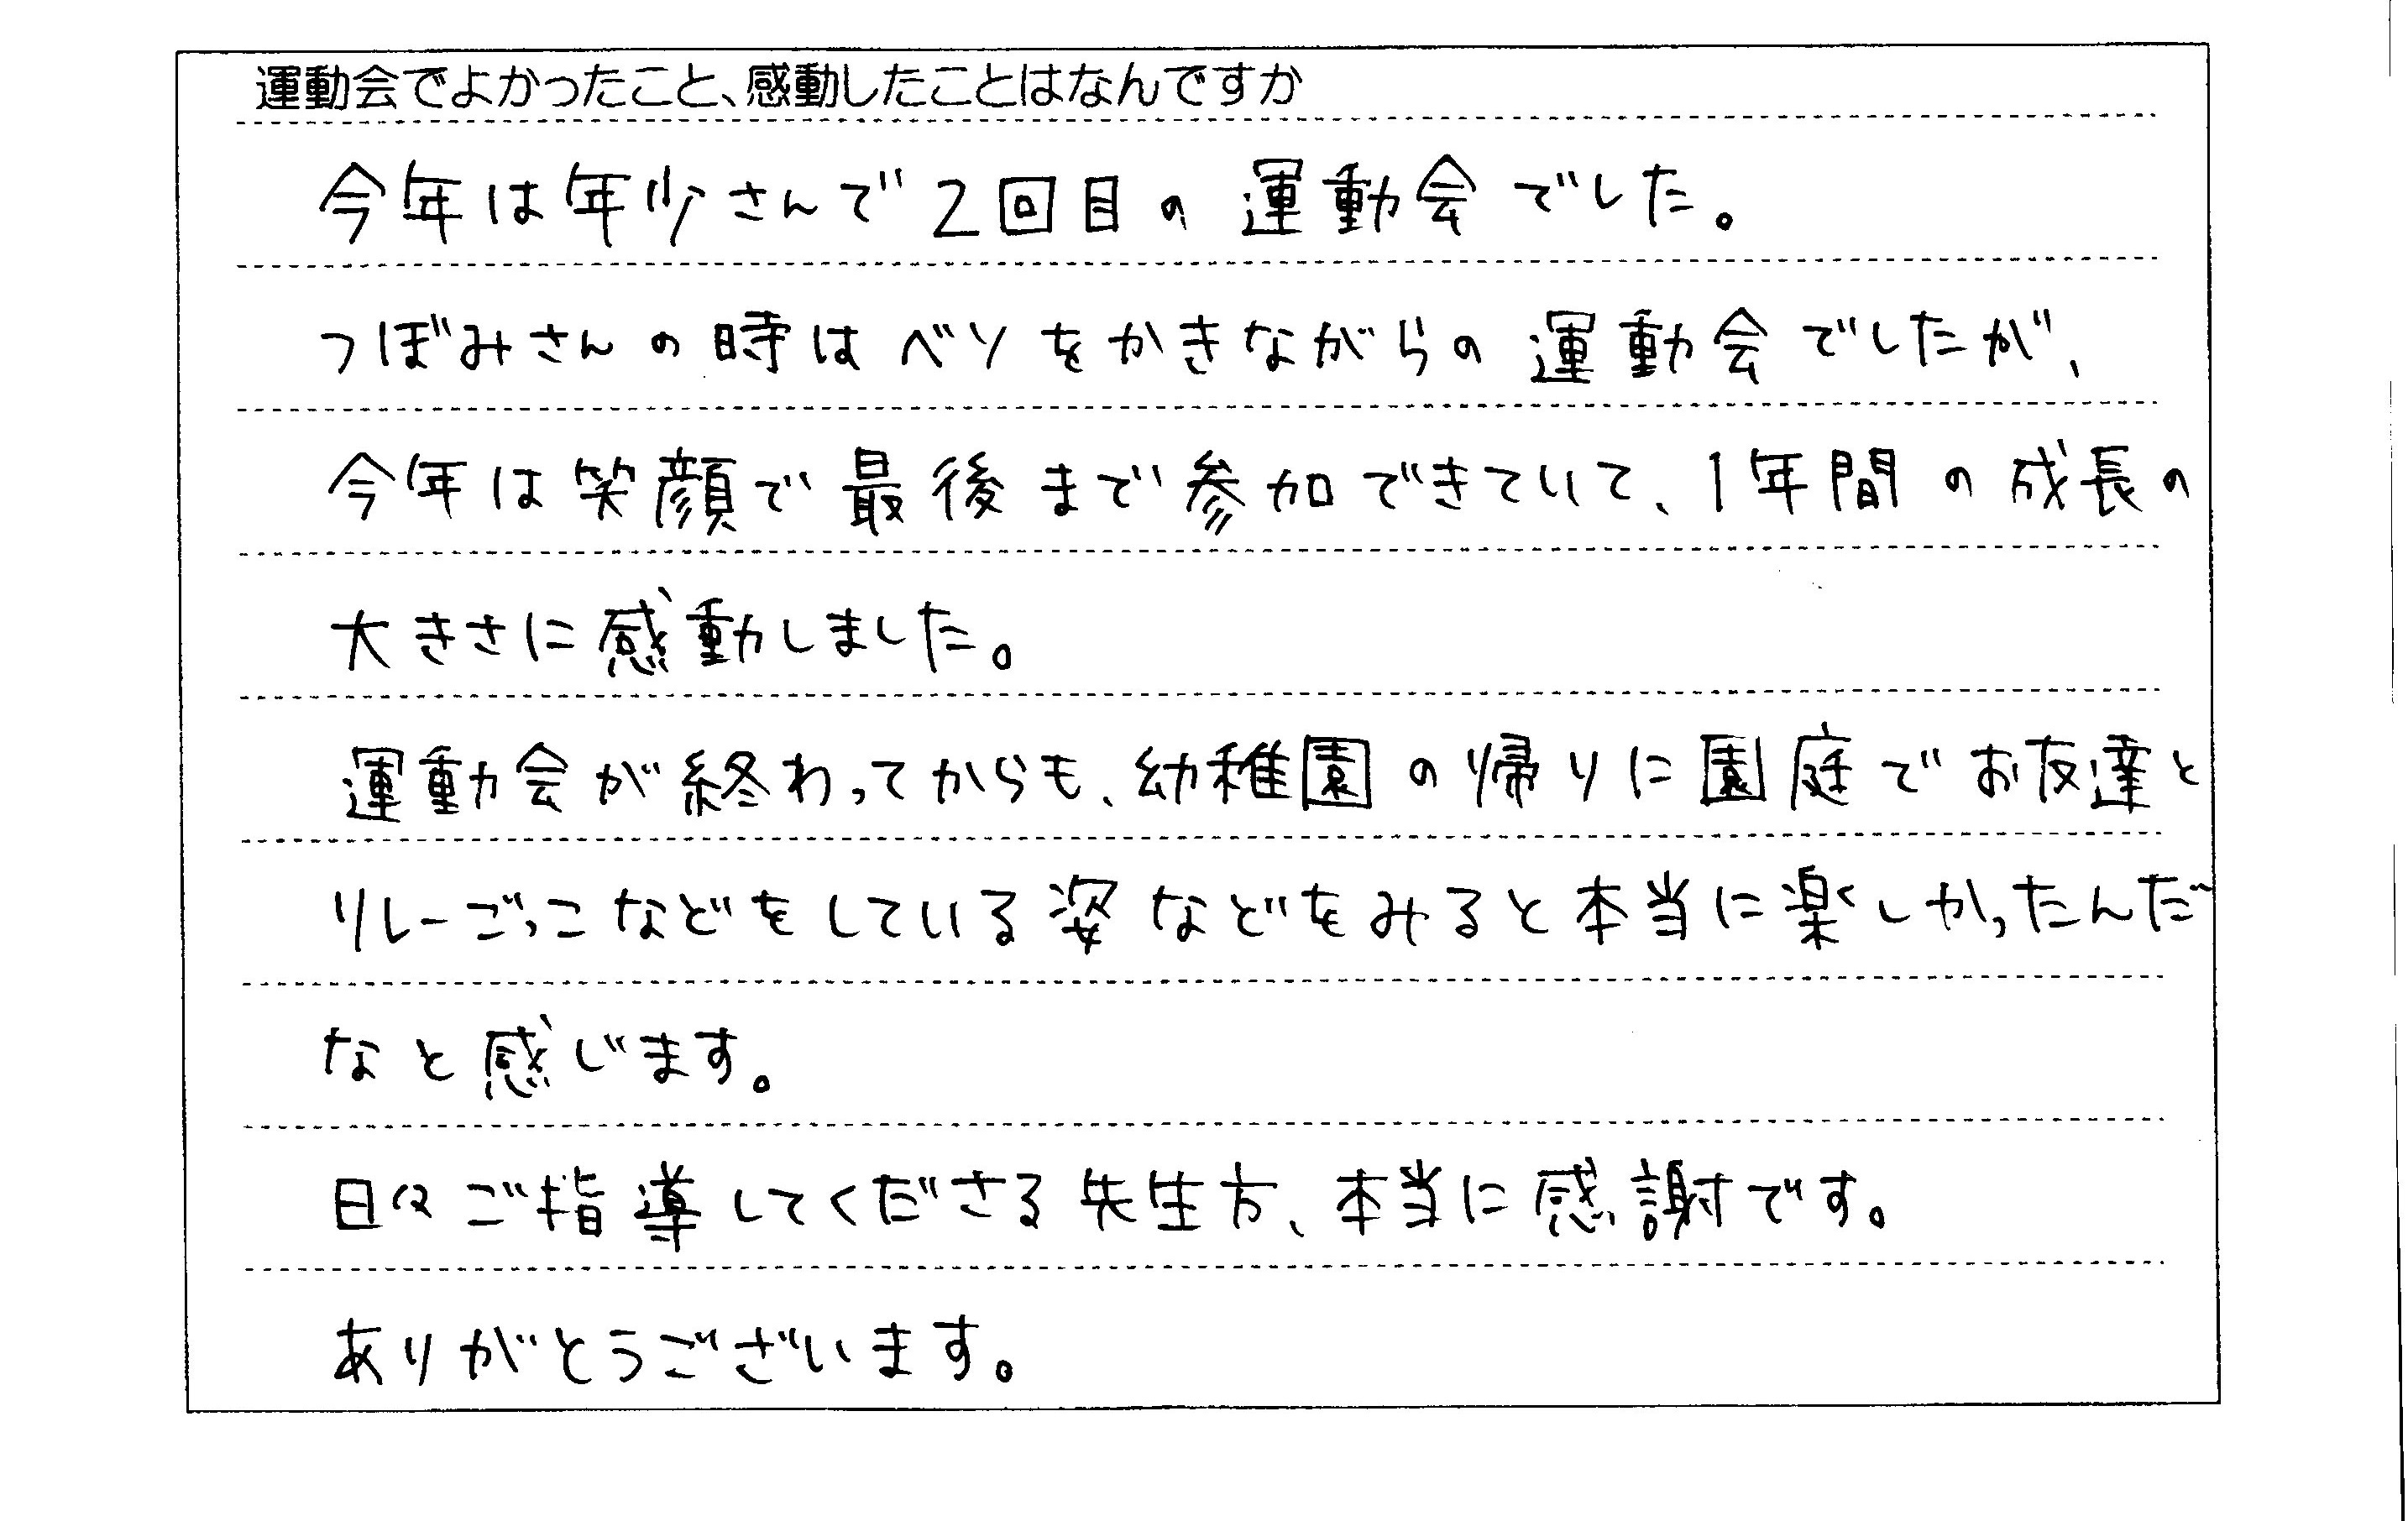 運動会でよかったこと、感動したことはなんですか
今年は年少さんで2回目の運動会でした。
つぼみさんの時はベソをかきながらの運動会でしたが、
今年は笑顔で最後まで参加できていて、1年間の成長の
大きさに感動しました。
運動会が終わってからも、幼稚園の帰りに園庭でお友達と
リレーごっこなどをしている姿などをみると本当に楽しかったんだ
なと感じます。
日々ご指導してくださる先生方、本当に感謝です。
ありがとうございます。